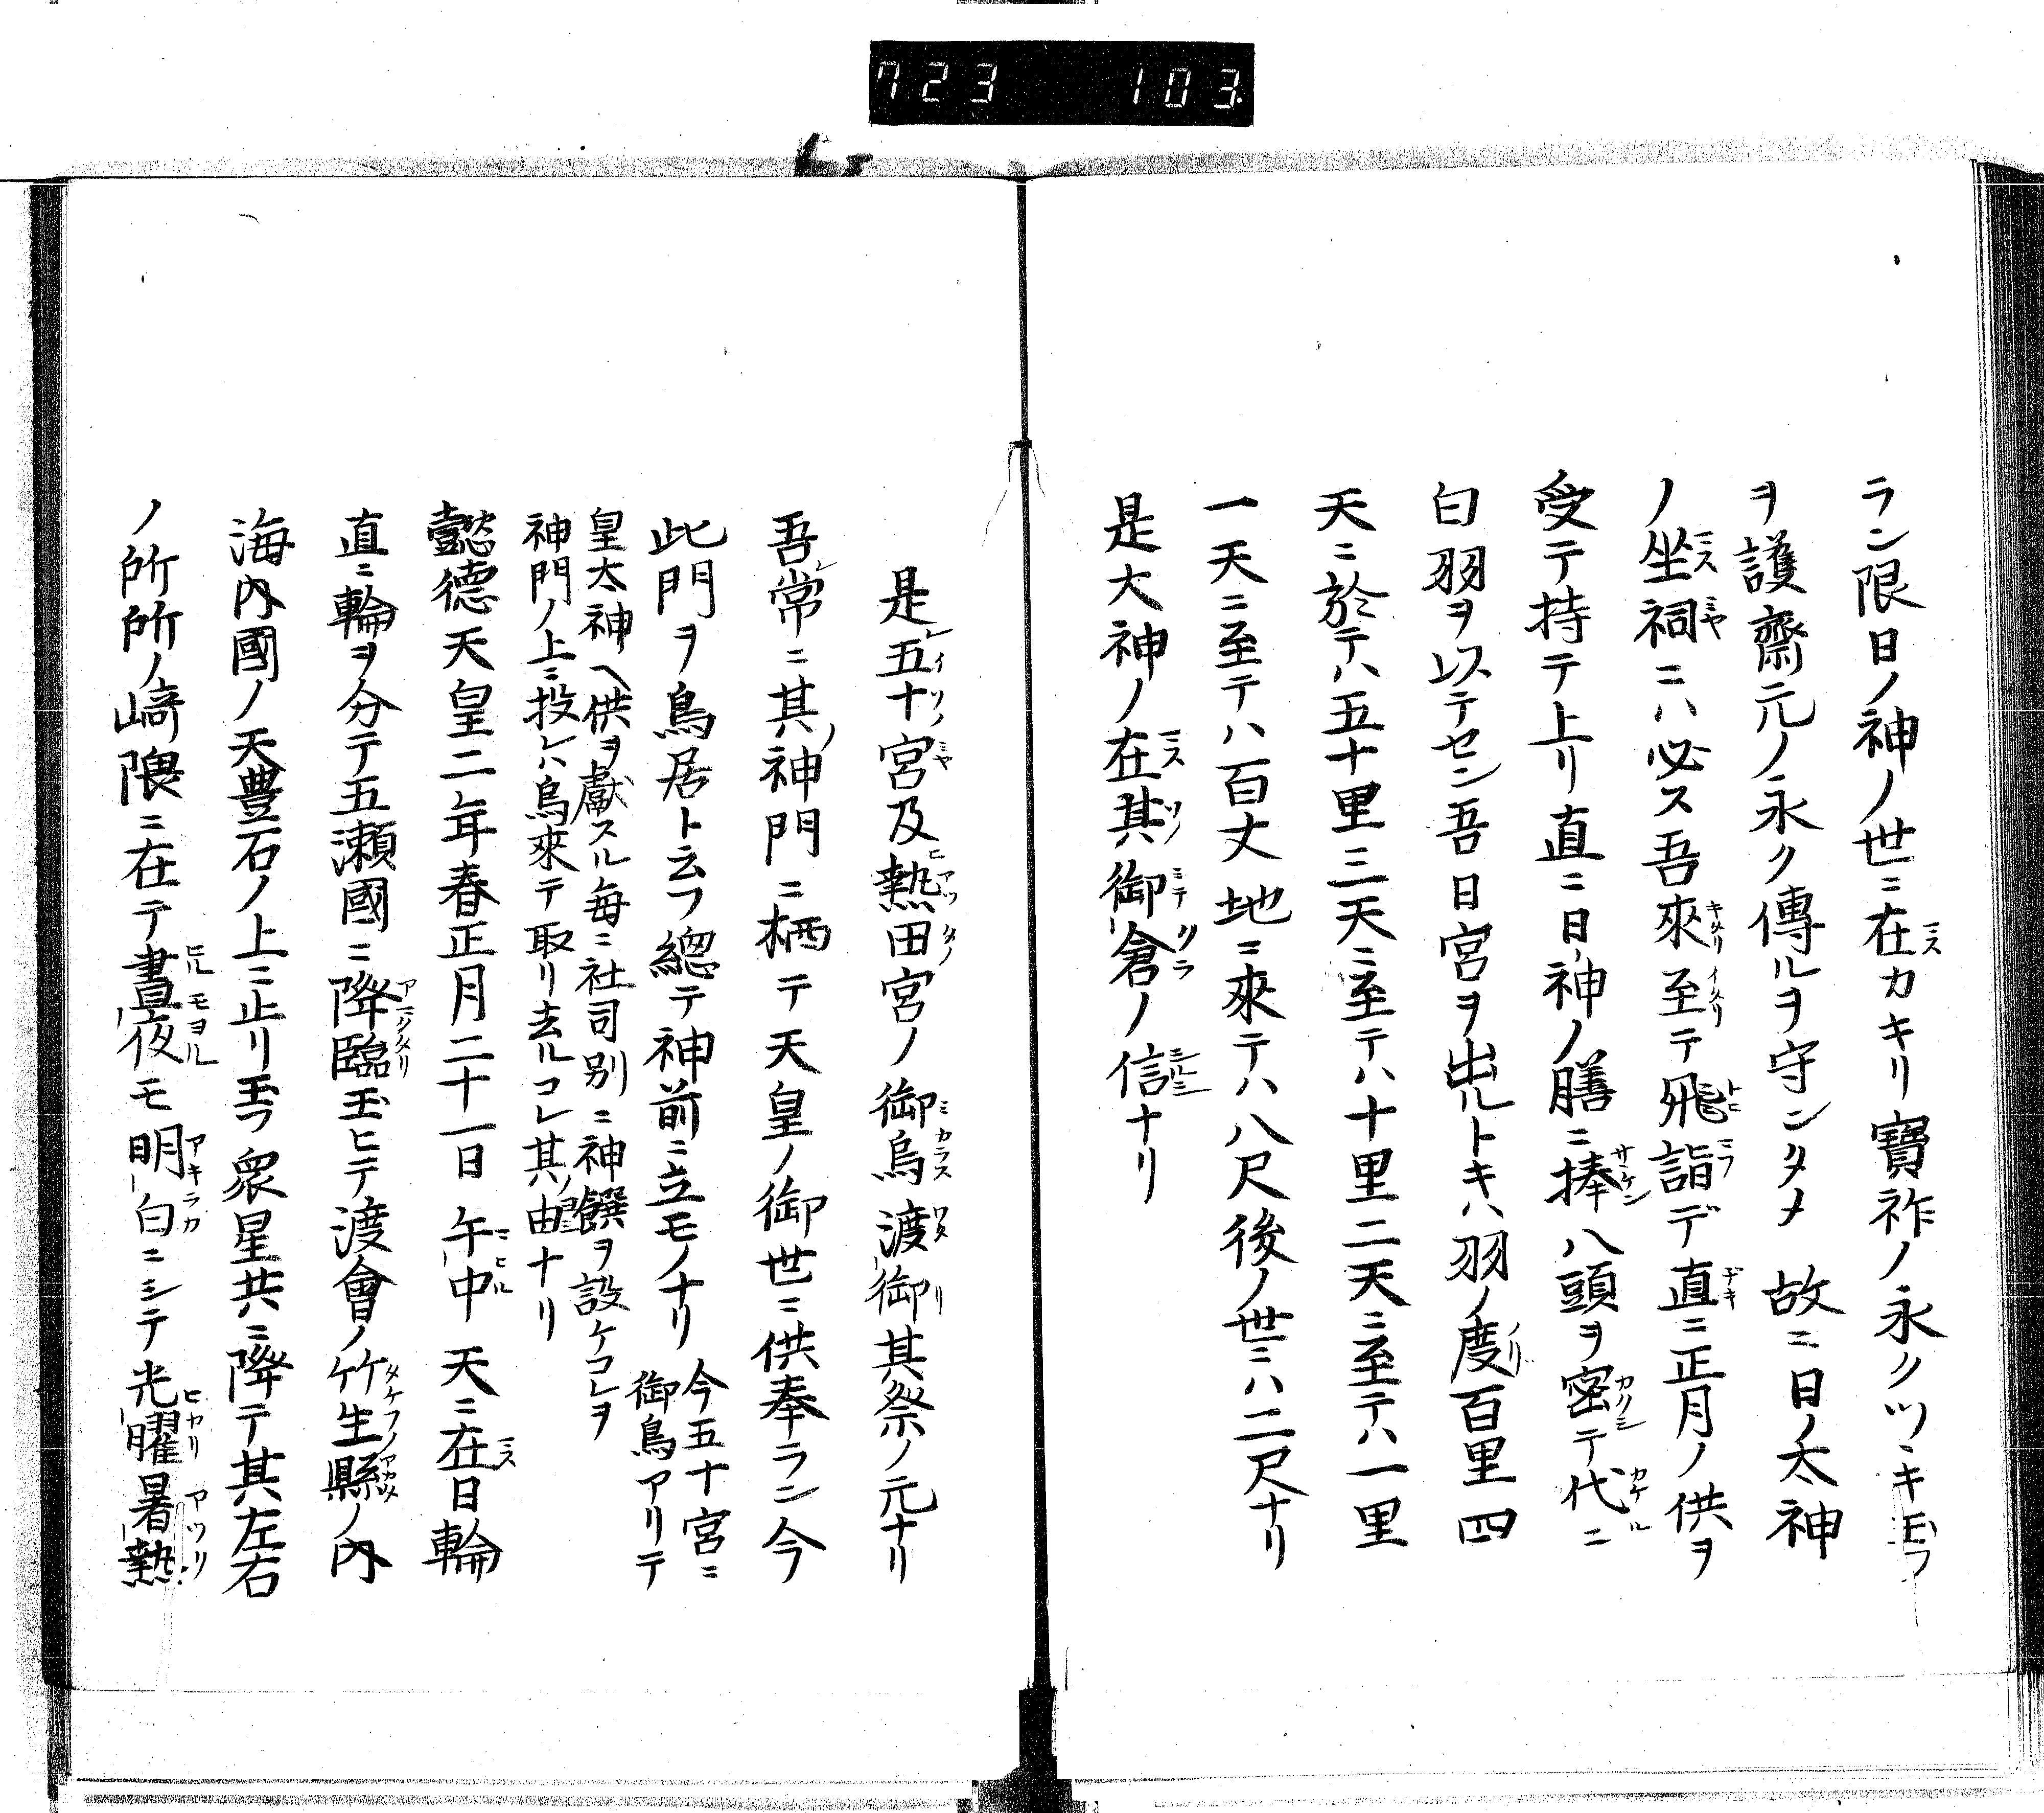 723 103.
ラン限日ノ神ノ世ニ在カキリ寶祚ノ永クツヽキ玉フ
ヲ護齋元ノ永ク傳ルヲ守ンタメ故ニ日ノ太神
ノ坐祠ニハ必ス吾來至テ飛詣デ直ニ正月ノ供ヲ
受テ持テ上リ直ニ日ノ神ノ膳ニ捧八頭ヲ密テ代ニ
白羽ヲ以テセン吾日宮ヲ出ルトキハ羽ノ度百里四
天ニ於テハ五十里三天ニ至テハ十里二天ニ至テハ一里
一天ニ至テハ百丈地ニ來テハ八尺後ノ世ニハ二尺ナリ
是大神ノ在其御倉ノ信ナリ
是五十宮及熱田宮ノ御烏渡御其祭ノ元ナリ
吾常ニ其神門ニ栖テ天皇ノ御世ニ供奉ラン今
此門ヲ鳥居ト云フ總テ神前ニ立モノナリ 今五十宮ニ
御烏アリテ
皇太神ヘ供ヲ獻スル毎ニ社司別ニ神饌ヲ設ケコレヲ
神門ノ上ニ投レハ烏來テ取リ去ルコレ其ノ由ナリ
懿德天皇二年春正月二十一日午中天ニ在日輪
直ニ輪ヲ分テ五瀬國ニ降臨玉ヒテ渡會ノ竹生縣ノ内
海内國ノ天豊石ノ上ニ止リ玉フ衆星共ニ降テ其左右
ノ所所ノ﨑隈ニ在テ晝夜モ明白ニシテ光曜暑熱